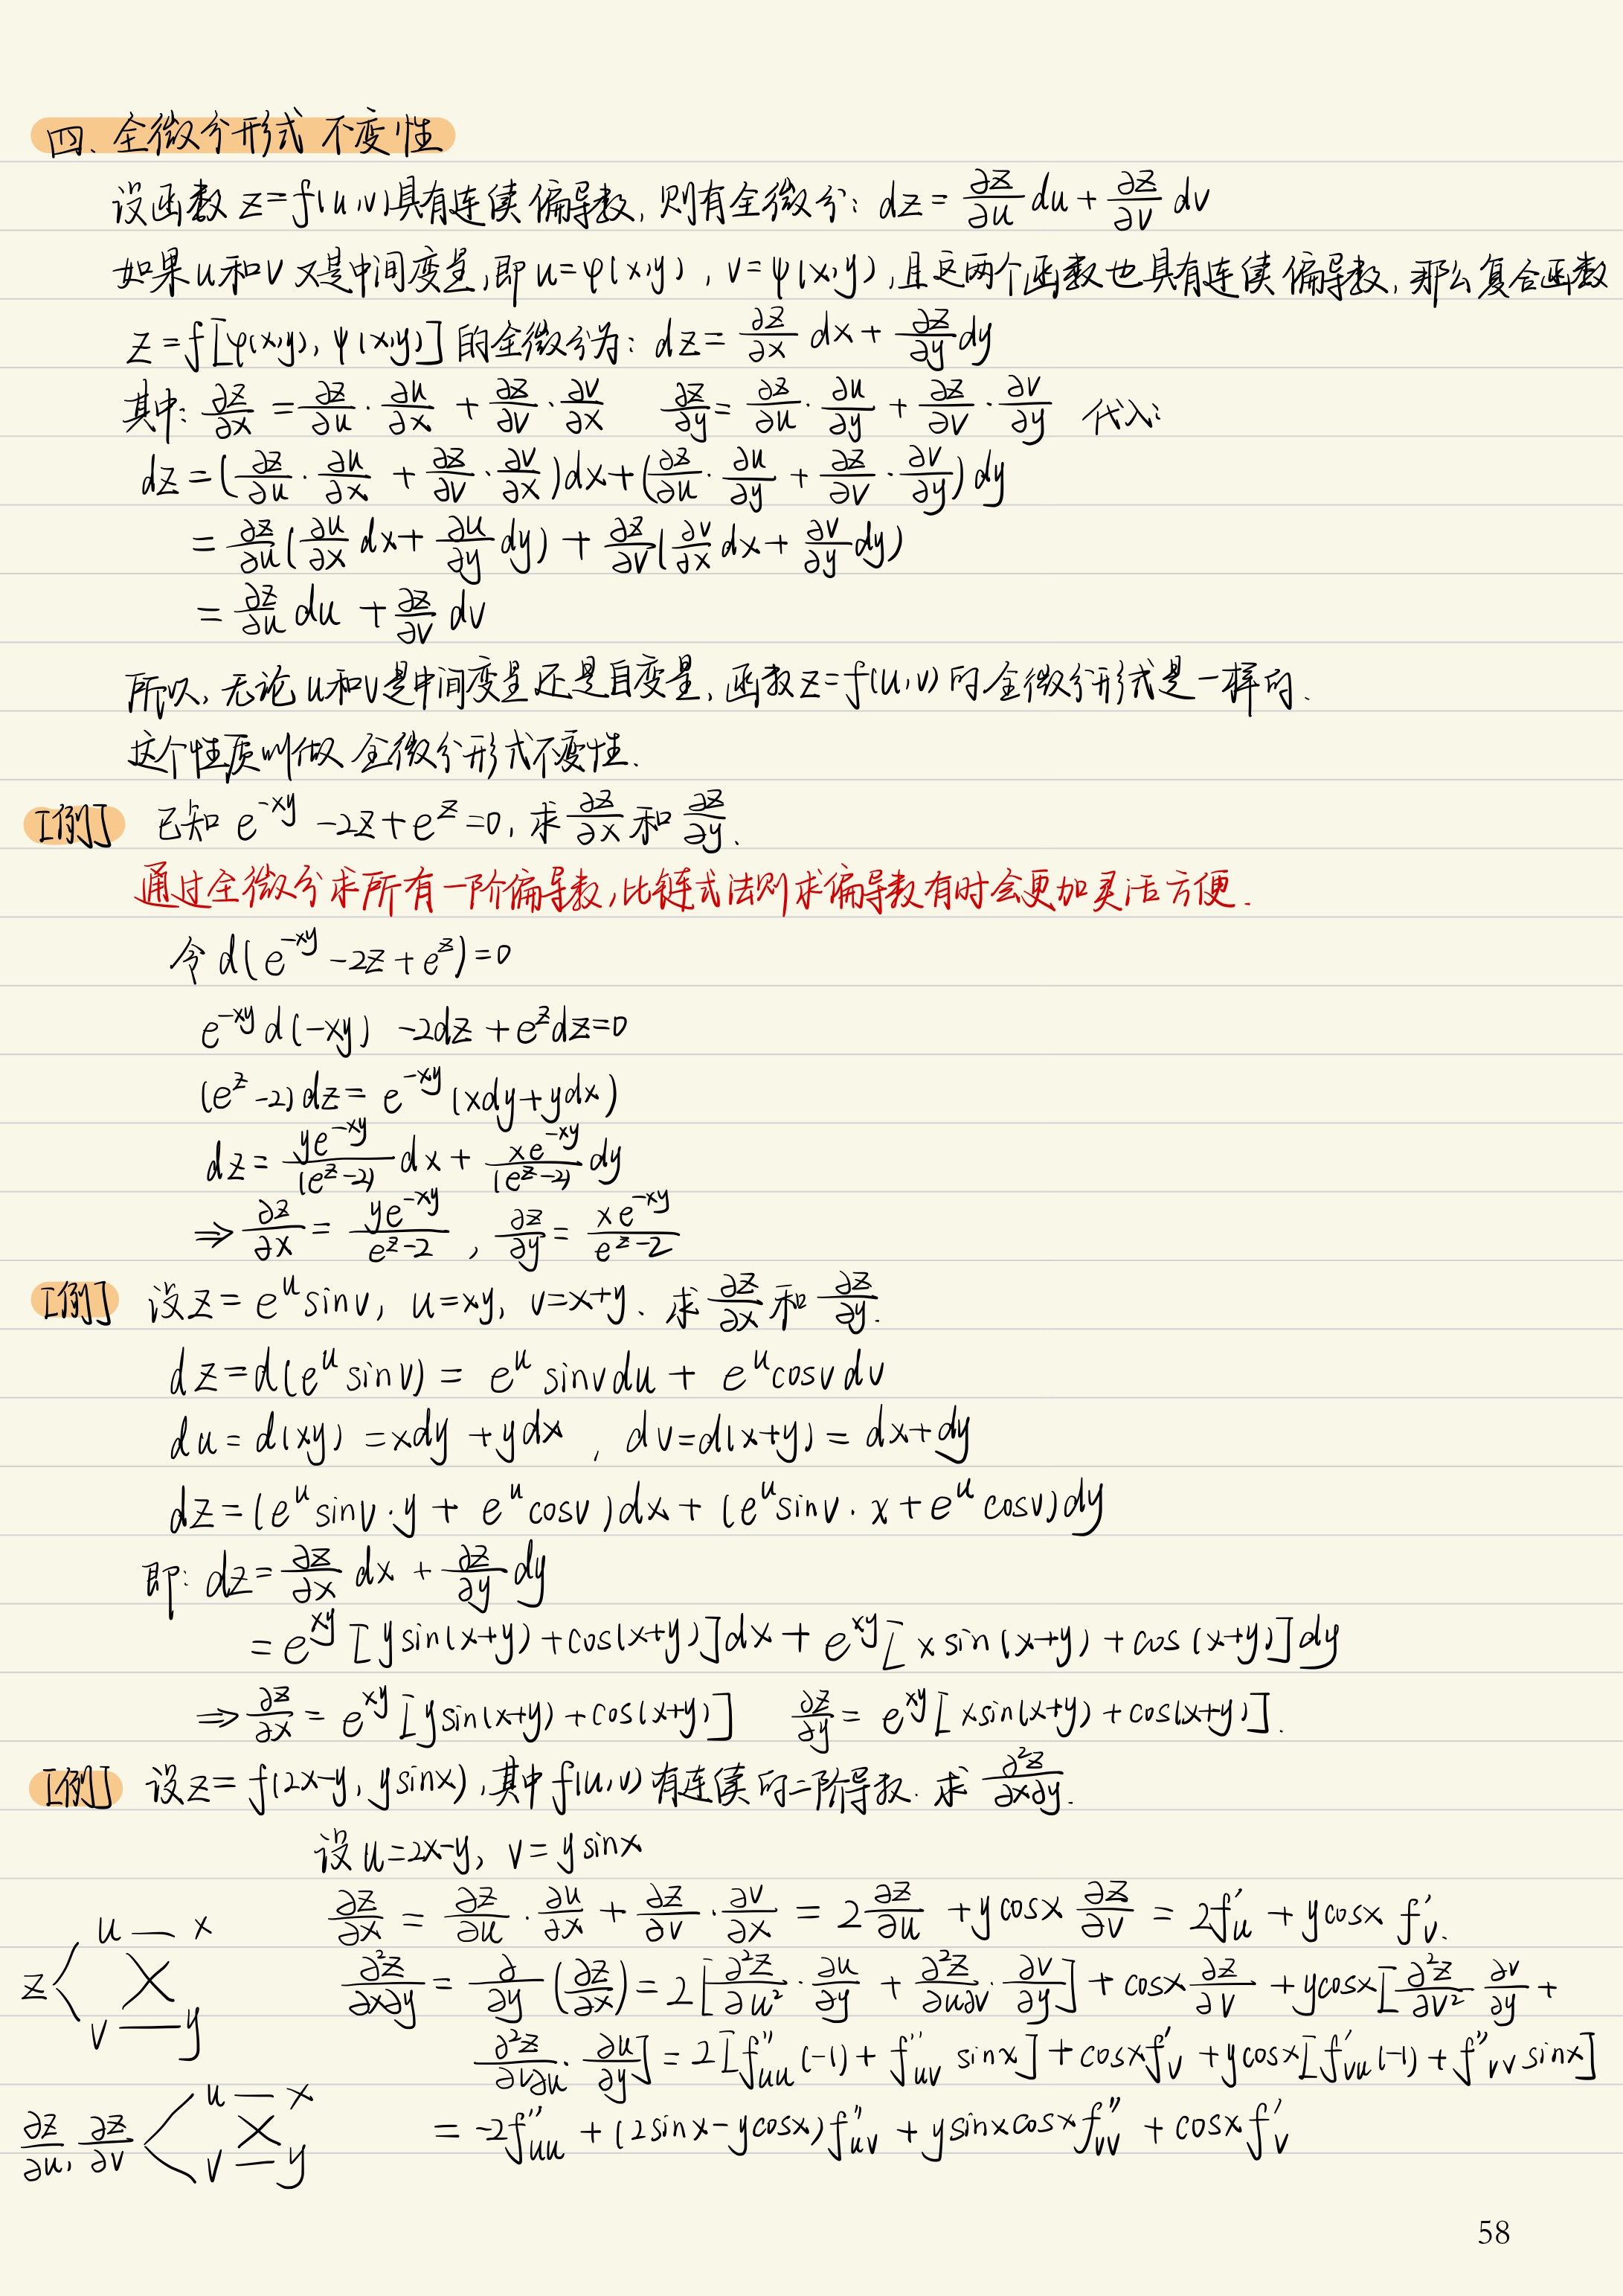 四. 全微分形式不变性
设函数 z=f(u,v)具有连续偏导数, 则有全微分: dz = ∂z/∂u du + ∂z/∂v dv
如果u和v又是中间变量,即 u=φ(x,y), v=ψ(x,y),且这两个函数也具有连续偏导数, 那么复合函数
z=f[φ(x,y), ψ(x,y)] 的全微分为: dz = ∂z/∂x dx + ∂z/∂y dy
其中: ∂z/∂x = ∂z/∂u · ∂u/∂x + ∂z/∂v · ∂v/∂x  ∂z/∂y = ∂z/∂u · ∂u/∂y + ∂z/∂v · ∂v/∂y 代入:
dz = (∂z/∂u · ∂u/∂x + ∂z/∂v · ∂v/∂x)dx + (∂z/∂u · ∂u/∂y + ∂z/∂v · ∂v/∂y)dy
= ∂z/∂u(∂u/∂x dx + ∂u/∂y dy) + ∂z/∂v(∂v/∂x dx + ∂v/∂y dy)
= ∂z/∂u du + ∂z/∂v dv
所以, 无论u和v是中间变量还是自变量, 函数z=f(u,v)的全微分形式是一样的.
这个性质叫做 全微分形式不变性.
[例] 已知 e^{-xy} -2z + e^z = 0, 求 ∂z/∂x 和 ∂z/∂y.
通过全微分求所有一阶偏导数,比链式法则求偏导数有时会更加灵活方便.
令 d(e^{-xy} -2z + e^z) = 0
e^{-xy} d(-xy) -2dz + e^z dz = 0
(e^z -2)dz = e^{-xy}(xdy+ydx)
dz = ye^{-xy}/(e^z-2) dx + xe^{-xy}/(e^z-2) dy
⇒ ∂z/∂x = ye^{-xy}/e^z-2 , ∂z/∂y = xe^{-xy}/e^z-2
[例] 设z = e^u sinv, u=xy, v=x+y. 求 ∂z/∂x 和 ∂z/∂y.
dz = d(e^u sinv) = e^u sinvdu + e^u cosvdv
du = d(xy) = xdy + ydx , dv=d(x+y) = dx+dy
dz = (e^u sinv·y + e^u cosv)dx + (e^u sinv·x + e^u cosv)dy
即: dz = ∂z/∂x dx + ∂z/∂y dy
= e^{xy}[ysin(x+y)+cos(x+y)]dx + e^{xy}[xsin(x+y)+cos(x+y)]dy
⇒ ∂z/∂x = e^{xy}[ysin(x+y)+cos(x+y)]  ∂z/∂y = e^{xy}[xsin(x+y)+cos(x+y)].
[例] 设z = f(2x-y, ysinx),其中f(u,v)有连续的二阶导数. 求 ∂²z/∂x∂y.
设 u=2x-y, v=ysinx
∂z/∂x = ∂z/∂u · ∂u/∂x + ∂z/∂v · ∂v/∂x = 2∂z/∂u + ycosx ∂z/∂v = 2f'_u + ycosx f'_v.
u — x
z
v — y
∂²z/∂x∂y = ∂/∂y(∂z/∂x) = 2[∂²z/∂u² · ∂u/∂y + ∂²z/∂u∂v · ∂v/∂y] + cosx ∂z/∂v + ycosx[∂²z/∂v² ∂v/∂y +
∂²z/∂v∂u · ∂u/∂y] = 2[f''_{uu}(-1) + f''_{uv} sinx] + cosxf'_v + ycosx[f'_{vu}(-1) + f''_{vv}sinx]
= -2f''_{uu} + (2sinx-ycosx)f''_{uv} + ysinxcosxf''_{vv} + cosxf'_v
u — x
∂z/∂u, ∂z/∂v
v — y
58